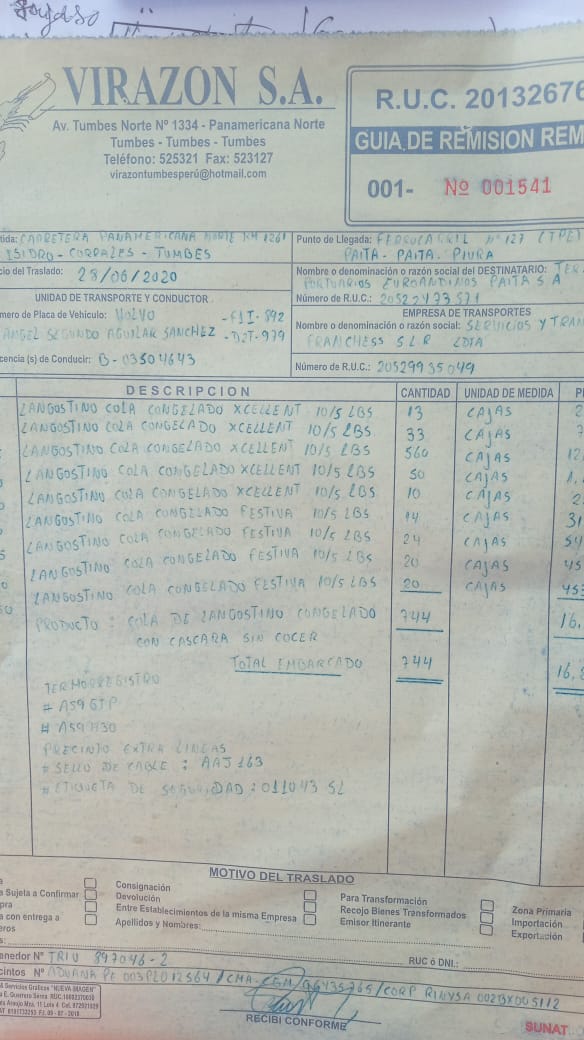 VIRAZON S.A.
Av. Tumbes Norte Nº 1334 - Panamericana Norte
Tumbes - Tumbes - Tumbes
Teléfono: 525321 Fax: 523127
virazontumbesperú@hotmail.com
R.U.C. 20132676
GUIA DE REMISION REM
001- Nº 001541
tida: CARRETERA PANAMERICANA NORTE KM 1261
ISIDRO - CORRALES - TUMBES
cio del Traslado: 28/06/2020
Punto de Llegada: FERROCARRIL Nº 127 (TPE)
PAITA - PAITA - PIURA
Nombre o denominación o razón social del DESTINATARIO: TER
PORTUARIOS EUROANDINOS PAITA S A
Número de R.U.C.: 20522473571
UNIDAD DE TRANSPORTE Y CONDUCTOR
mero de Placa de Vehículo: VOLVO - F1I-892
ANGEL SEGUNDO AGUILAR SANCHEZ - D2T-979
cencia (s) de Conducir: B-03504643
EMPRESA DE TRANSPORTES
Nombre o denominación o razón social: SERVICIOS Y TRAN
FRANCHESS S R L LDTA
Número de R.U.C.: 20529935049
DESCRIPCION CANTIDAD UNIDAD DE MEDIDA P
LANGOSTINO COLA CONGELADO XCELLENT 10/5 LBS 13 CAJAS 2
LANGOSTINO COLA CONGELADO XCELLENT 10/5 LBS 33 CAJAS 7
LANGOSTINO COLA CONGELADO XCELLENT 10/5 LBS 560 CAJAS 12,
LANGOSTINO COLA CONGELADO XCELLENT 10/5 LBS 50 CAJAS 1,
LANGOSTINO COLA CONGELADO XCELLENT 10/5 LBS 10 CAJAS 2
LANGOSTINO COLA CONGELADO FESTIVA 10/5 LBS 14 CAJAS 31
LANGOSTINO COLA CONGELADO FESTIVA 10/5 LBS 24 CAJAS 54
LANGOSTINO COLA CONGELADO FESTIVA 10/5 LBS 20 CAJAS 45
LANGOSTINO COLA CONGELADO FESTIVA 10/5 LBS 20 CAJAS 453
PRODUCTO : COLA DE LANGOSTINO CONGELADO 744 16,
CON CASCARA SIN COCER
TOTAL EMBARCADO 744 16,8
TERMORREGISTRO
# A59 GTP
# A59 H30
PRECINTO EXTRA LINEAS
# SELLO DE CABLE : AAJ 163
# ETIQUETA DE SEGURIDAD : 011043 SL
MOTIVO DEL TRASLADO
a Sujeta a Confirmar
pra
a con entrega a
eros
Consignación
Devolución
Entre Establecimientos de la misma Empresa
Apellidos y Nombres:
Para Transformación
Recojo Bienes Transformados
Emisor Itinerante
Zona Primaria
Importación
Exportación
RUC ó DNI.:
anedor Nº TRIU 897046-2
cintos Nº ADUANA PE 003PL012564 / CMA-CGM / G6435765 / CORP RINVSA 002BX005112
RECIBI CONFORME
SUNAT